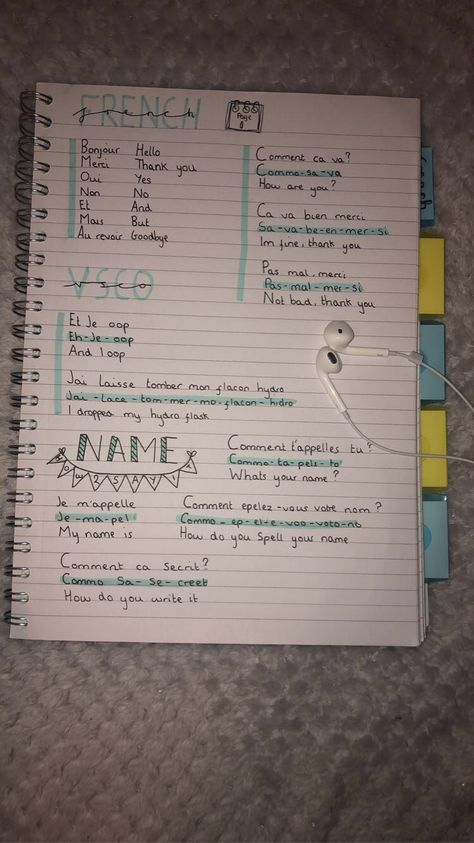 FRENCH
french
Page
Bonjour Hello
Merci Thank you
Oui Yes
Non No
Et And
Mais But
Au revoir Goodbye
Comment ca va?
Commo-sa-va
How are you?
Ca va bien merci
Sa-va-be-en-mer-si
Im fine, thank you
Pas mal, merci
Pas-mal-mer-si
Not bad, thank you
VSCO
vsco
Et Je oop
Eh-Je-oop
And I oop
J'ai laisse tomber mon flacon hydro
Jai-lace-tom-mer-mo-flacon-hidro
I dropped my hydro flask
NAME
HOW 2 SAY IT
Comment t'appelles tu?
Commo-ta-pels-to
Whats your name?
Je m'appelle
Je-ma-pel
My name is
Comment epelez-vous votre nom?
Commo-ep-el-e-voo-voto-no
How do you Spell your name
Comment ca Secrit?
Commo Sa-Se-creet
How do you write it